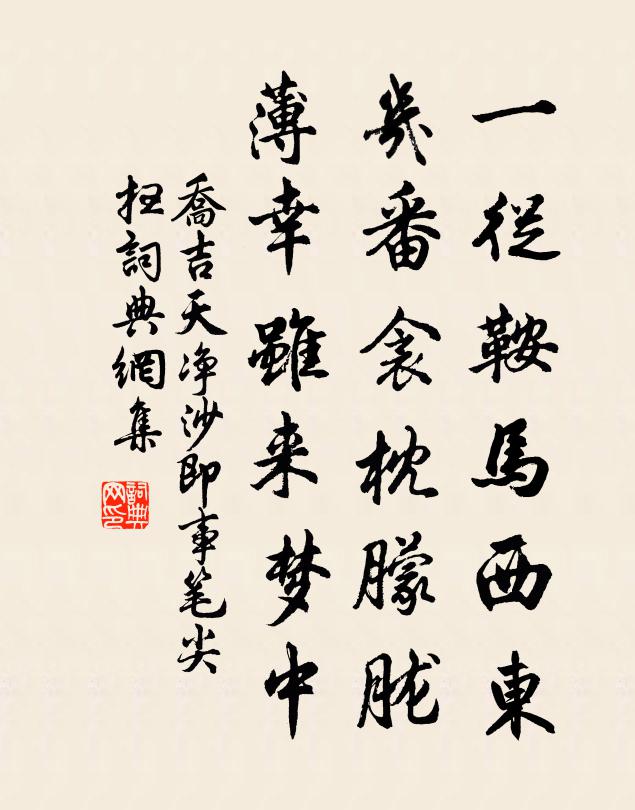 一從鞍馬西東
幾番衾枕朦朧
薄幸雖来梦中
喬吉天净沙即事笔尖
扭詞典網集
詞典网印